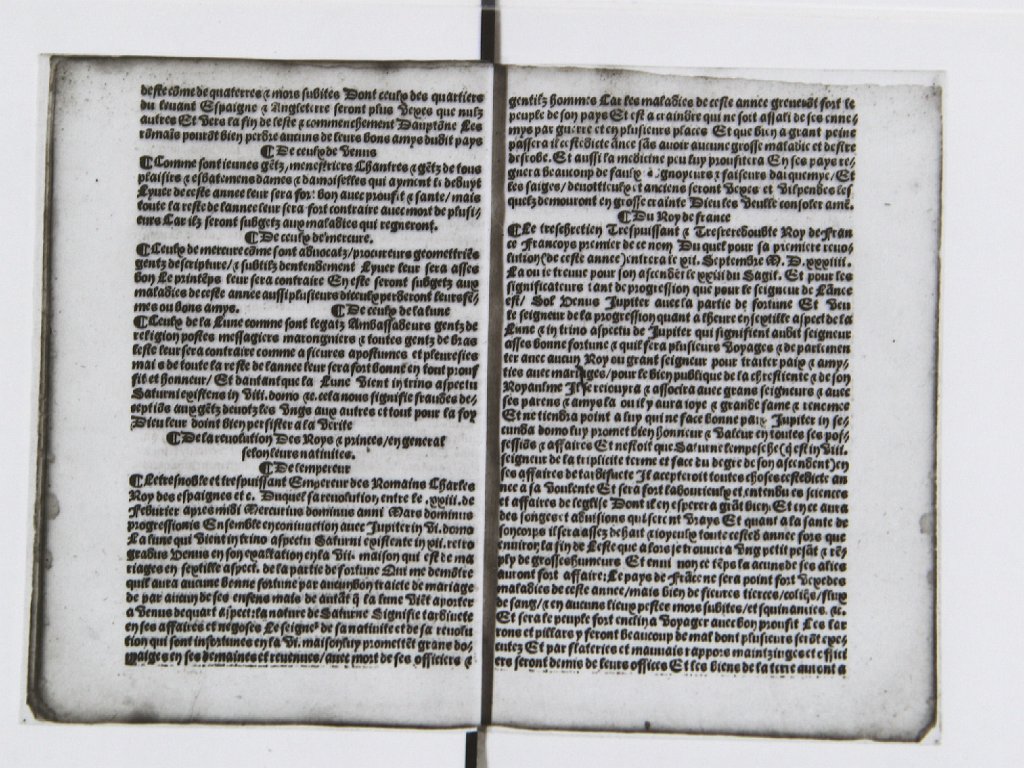 deste cõme de quaterres & mors subites Dont ceulx des quartiers
du leuant Espaigne & Angleterre seront plus vexes que nulz
autres Et vers la fin de leste & commenchement Dauptõne Les
rõmaĩs pourõt bien perdre aucuns de leurs bons amys dudit pays
¶ De ceulx de Venus
¶ Comme sont ieunes gẽtz, menestriers Chantres & gẽtz de tous
plaisirs & esbatemens dames & damoiselles qui ayment le debuyt
Lyuer de ceste annee leur sera fort bon auec proufit & sante/ mais
toute la reste de lannee leur sera fort contraire auec mort de plusi-
eurs Car ilz seront subgetz aux maladies qui regneront.
¶ De ceulx de mercure.
¶ Ceulx de mercure cõme sont aduocatz/ procureurs geometriẽs
gentz descripture/ & subtilz dentendement Lyuer leur sera asses
bon Le printẽps leur sera contraire En este seront subgetz aux
maladies de ceste annee aussi plusieurs diceulx perderont leurs fẽ-
mes ou bons amys. ¶ De ceulx de la lune
¶ Ceulx de la Lune comme sont legatz Ambassadeurs gentz de
religion postes messagiers marongniers & toutes gentz de bras
leste leur sera contraire comme a fieures apostumes et pleuresies
mais de toute la reste de lannee leur sera fort bonne en tout prouf
fit et honneur/ Et dautant que la Lune vient in trino aspectu
Saturni existens in viii. domo &c. cela nous signifie fraudes de-
septiõs aux gẽtz deuotz les vngs aux autres et tout pour la foy
Dieu leur doint bien persister a la verite
¶ De la reuolution Des Roys & princes/ en general
selon leurs natiuites.
¶ De lempereur
¶ Le tresnoble et trespuissant Empereur des Romains Charles
Roy des espaignes etc. Duquel sa reuolution entre le .xxiii. de
Feburier apres midi Mercurius dominus anni Mars dominus
progressionis Ensemble en coniunction auec Jupiter in vi. domo
La lune qui vient in trino aspectu Saturni existente in xii. retro
gradus Venus en son exaltation en la vii. maison qui est de ma
riages en sextille aspect. de la partie de fortune Qui me demõtre
quil aura aucune bonne fortune par aucun bon traicte de mariage
de par aucun de ses enfens mais de autãt q̃ la lune viẽt aporter
a Venus de quart aspect: la nature de Saturne Signifie tardiuete
en ses affaires et negoses Le seigneʳ de sa natiuite et de sa reuolu
tion qui sont infortunes en la vi. maison luy promettẽt grans do-
maiges en ses demaines et reuenues/ auec mort de ses officiers &
gentilz hommes Car les maladies de ceste annee greueront fort le
peuple de son pays Et est a craindre qui ne soit assali de ses enne-
mys par guerre et en plusieurs places Et que bien a grant peine
passera il cestedicte ance sãs auoir aucune grosse maladie et destre
desrobe. Et aussi la medicine peu luy proufitera En ses pays re-
gnera beaucoup de faulx monnoyeurs & faiseurs dalquemye/ Et
les saiges/ deuotieulx et anciens seront vexes et vilpendes les
quelz demouront en grosse crainte Dieu les veulle consoler amẽ.
¶ Du Roy de france
¶ Le treschretien Trespuissant & Tresreredoubte Roy de Fran
ce Francoys premier de ce nom Du quel pour sa premiere reuo-
lution (de ceste annee) entrera le xii. Septembre M. D. xxxiiii.
La ou ie treuue pour son ascendẽt le xxiii du Sagit. Et pour les
significateurs tant de progression que pour le seigneur de Lãnce
est/ Sol Venus Jupiter auec la partie de fortune Et veu
le seigneur de la progression quant a lheure en sextille aspect de la
Lune & in trino aspectu de Jupiter qui signifient audit seigneur
asses bonne fortune & quil fera plusieurs voyages & de partemen
ter auec aucun Roy ou grant seigneur pour traiter paix & amy-
ties auec mariages/ pour le bien publique de la chrestiente & de son
Royaulme Il se reiouyra & associra auec grans seigneurs & auec
ses parens & amys la ou il y aura ioye & grande fame & renõmee
Et ne tiendra point a luy qui ne face bonne paix Jupiter in se-
cunda domo luy promet bien honneur & valeur en toutes ses pos-
sessiõs & affaires Et nestoit que Saturne lempesche (q̃ est in viii.
seigneur de la triplicite terme et face du degre de son ascendent) en
ses affaires de tardifuete Il acepteroit toutes choses cestedicte an
nee a sa voulente Et sera fort labourieulx et entendu es sciences
et affaires de leglise Dont il en esperera grãt bien Et en ce aura
des songes et aduisions qui seront vrays Et quant a la sante de
son corps il sera assez de hait & ioyeulx toute cestedicte annee fors que
enuiron la fin de Leste que alors ie trouuera vng petit pesãt & rẽ-
ply de grosses humeurs Et enui non ce tẽps la acuns de ses alies
auront fort affaire: Le pays de Frãce ne sera point fort vexe des
maladies de ceste annee/ mais bien de fieures tierces/ coliq̃s/ flux
de sang/ & en aucuns lieux pestes mors subites/ et squinancies. &c.
Et sera le peuple fort enclin a voyager auec bon proufit Les lar
rons et pillars y feront beaucoup de mal dont plusieurs serõt exe-
cutez Et par flateries et mauuais rappors maintz juges et offici
ers seront demis de leurs offices Et les biens de la terre auront a